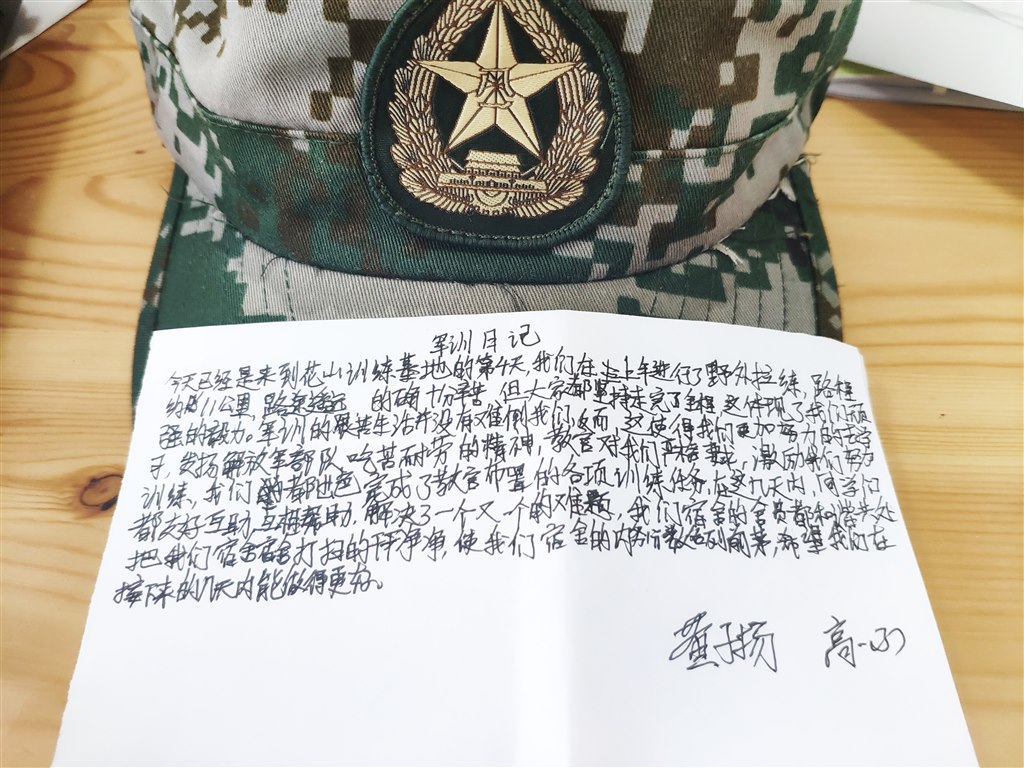 军训日记
今天已经是来到花山训练基地的第4天,我们在上午进行了野外拉练,路程
约11公里,路 的确十分辛苦,但大家都坚持走完了全程,这体现了我们顽
强的毅力。军训的艰苦生活并没有难倒我们,反而,这使得我们更加努力的去学
习,发扬解放军部队,吃苦耐劳的精神,教官对我们严格要求,激励我们努力
训练,我们都出色完成了教官布置的各项训练任务,在这几天内,同学们
都友好互助,互相帮助,解决了一个又一个的难题,我们宿舍的舍员都和谐共处
把我们宿舍打扫的干干净净,使我们宿舍的内务分数名列前茅,希望我们在
接下来的几天内能做得更好。
黄子扬 高一(3)